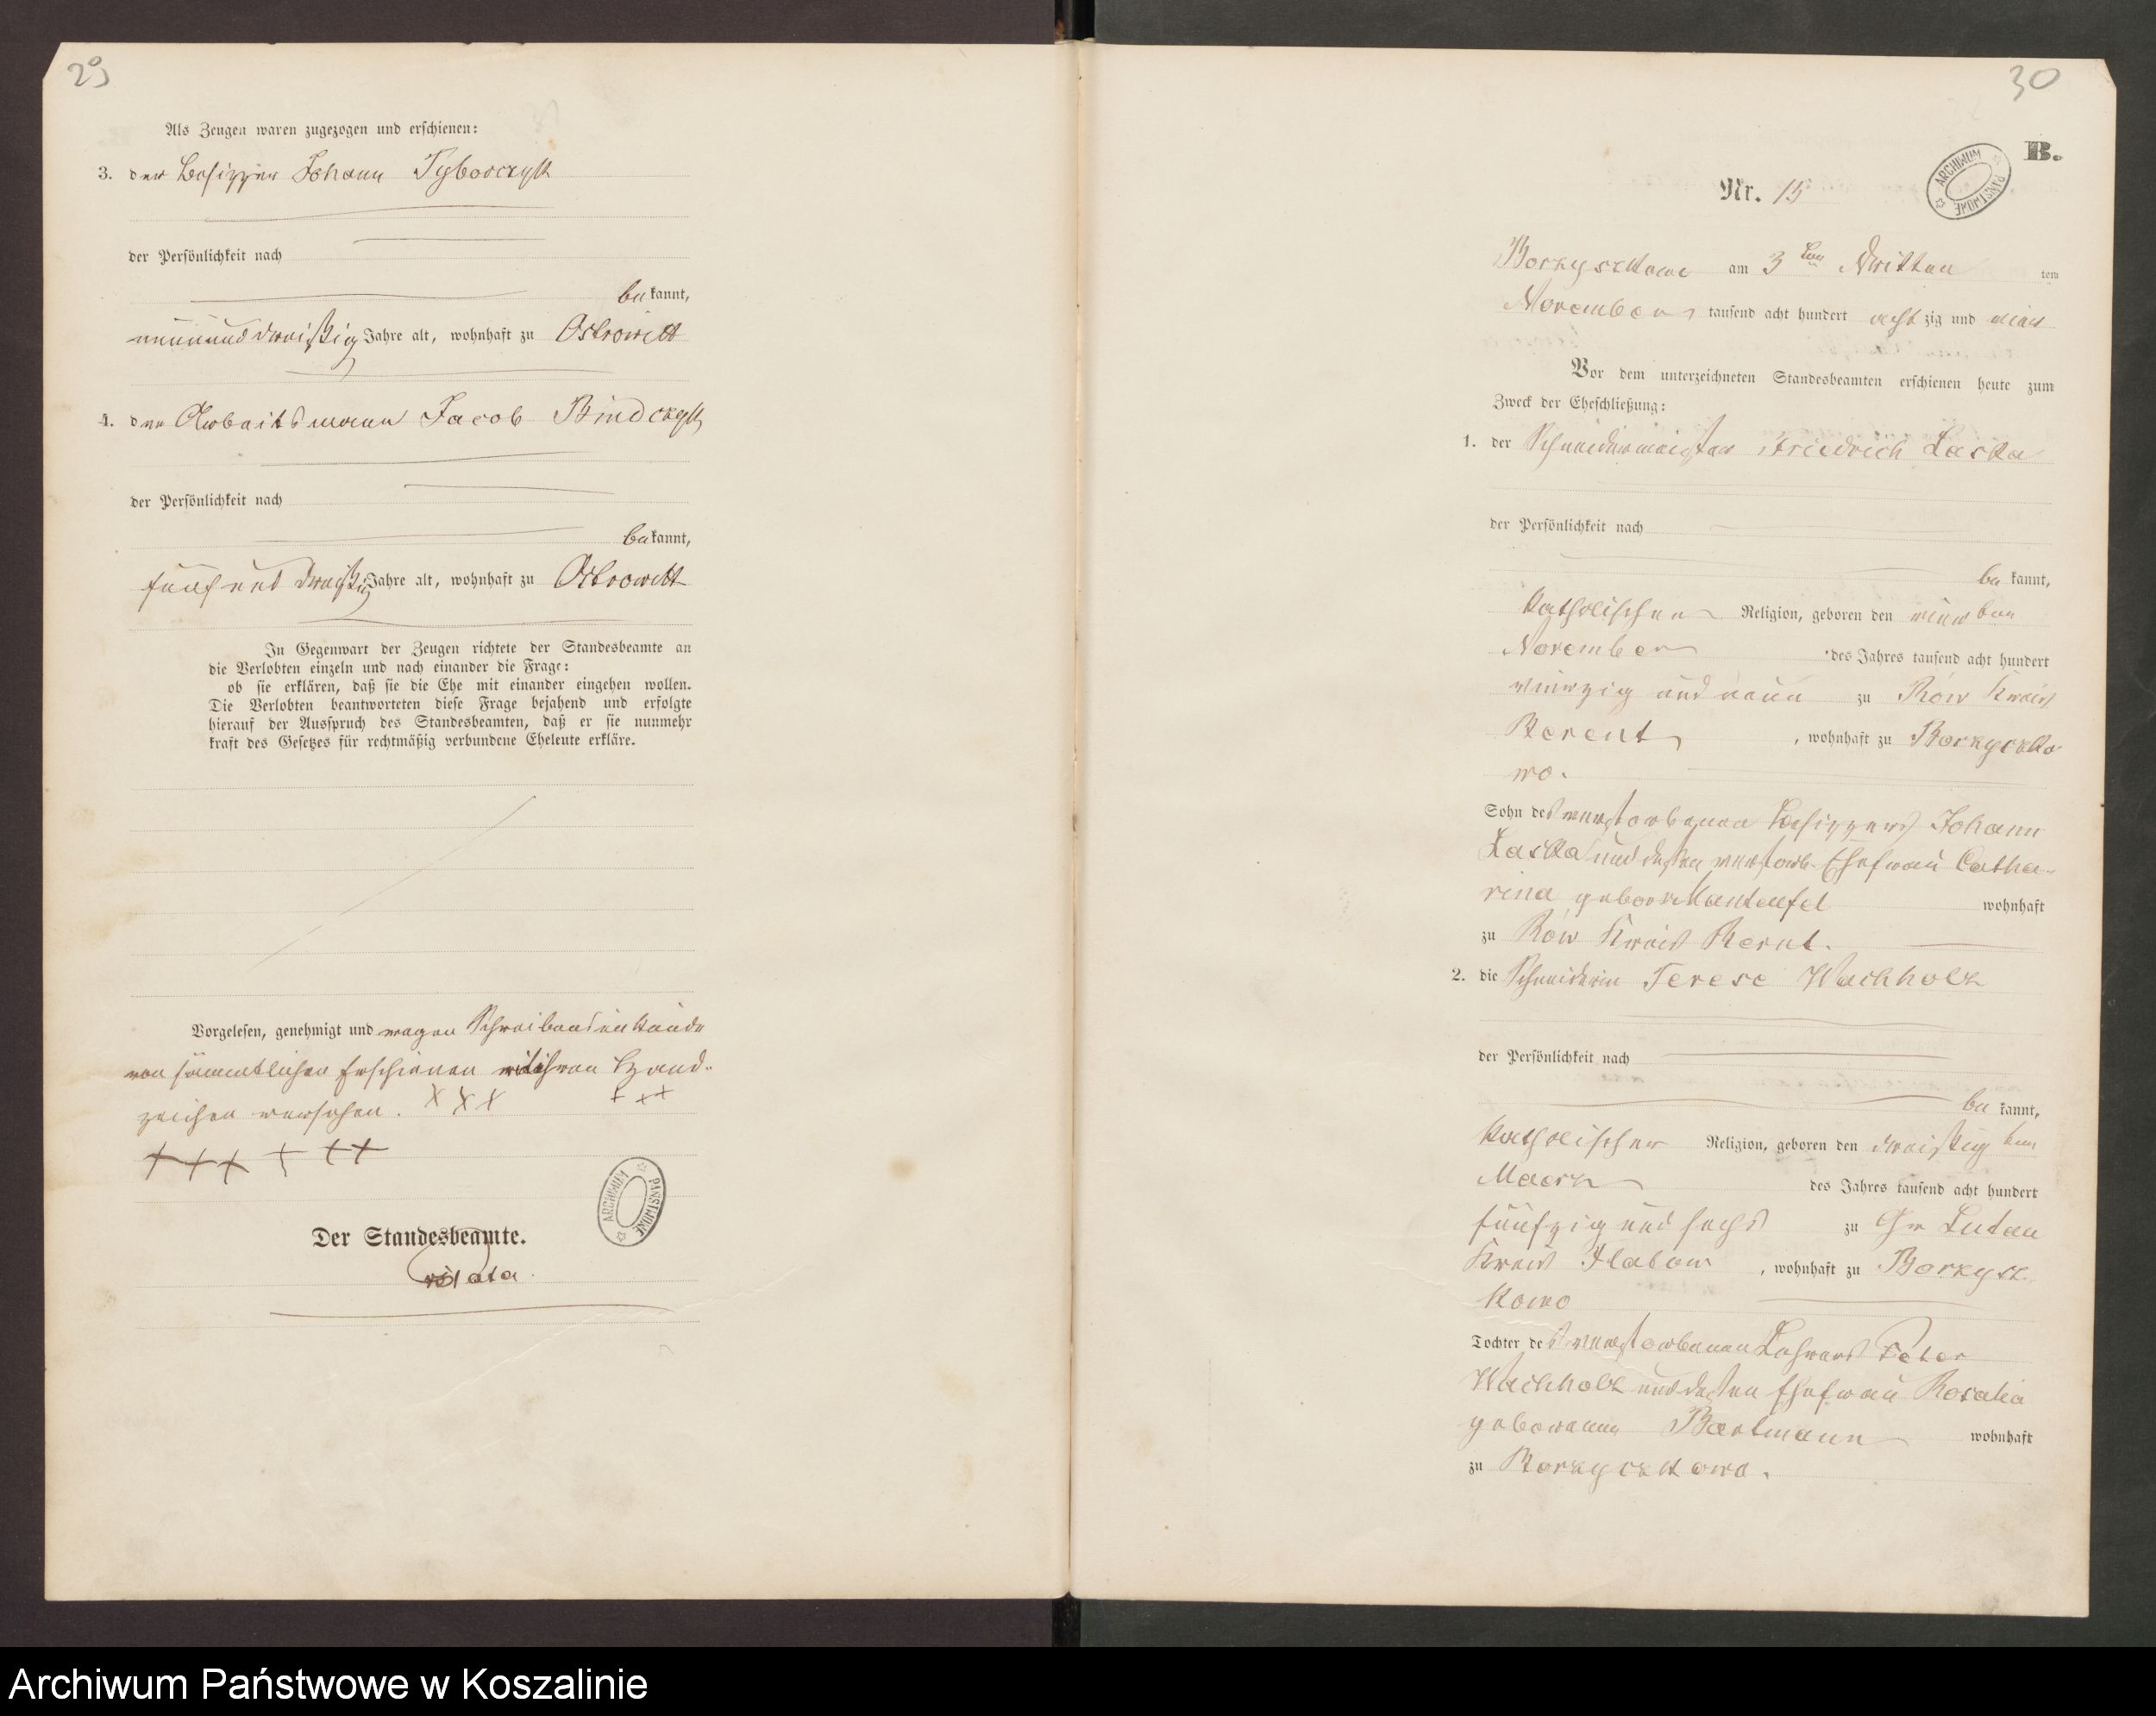 29
Als Zeugen waren zugezogen und erschienen:
3. der Besitzer Johann Tyborczyk
der Persönlichkeit nach
bekannt,
neunund dreißig Jahre alt, wohnhaft zu Ostrowitt
4. der Arbeitsmann Jacob Bindczyk
der Persönlichkeit nach
bekannt,
fünf und dreißig Jahre alt, wohnhaft zu Ostrowitt
In Gegenwart der Zeugen richtete der Standesbeamte an
die Verlobten einzeln und nach einander die Frage:
ob sie erklären, daß sie die Ehe mit einander eingehen wollen.
Die Verlobten beantworteten diese Frage bejahend und erfolgte
hierauf der Ausspruch des Standesbeamten, daß er sie nunmehr
kraft des Gesetzes für rechtmäßig verbundene Eheleute erkläre.
Vorgelesen, genehmigt und wegen Schreibensunkunde
von sämmtlichen Erschienen mit ihren Hand-
zeichen versehen. XXX +++
+++ +++
ARCHIWUM PAŃSTWOWE
Der Standesbeamte.
30
B.
ARCHIWUM PAŃSTWOWE
Nr. 15
Borzyszkowo am 3ten Dritten ten
November tausend acht hundert achtzig und
Vor dem unterzeichneten Standesbeamten erschienen heute zum
Zweck der Eheschließung:
1. der Schneidermeister Friedrich Laska
der Persönlichkeit nach
bekannt,
katholischer Religion, geboren den vierten
November des Jahres tausend acht hundert
vierzig und neun zu Rów Kreis
Berent, wohnhaft zu Borzyszko
wo.
Sohn des verstorbenen Besitzers Johann
Laska und dessen verstorb. Ehefrau Catha-
rina geboren Manteufel wohnhaft
zu Rów Kreis Bernt.
2. die Schneiderin Terese Wachholz
der Persönlichkeit nach
bekannt,
katholischer Religion, geboren den dreißigten
Maerz des Jahres tausend acht hundert
fünfzig und sechs zu Gr Lutau
Kreis Flatow, wohnhaft zu Borzysz-
kowo
Tochter des verstorbenen Lehrers Peter
Wachholz und dessen Ehefrau Rosalia
geborenen Bartmann wohnhaft
zu Borzyszkowo.
Archiwum Państwowe w Koszalinie